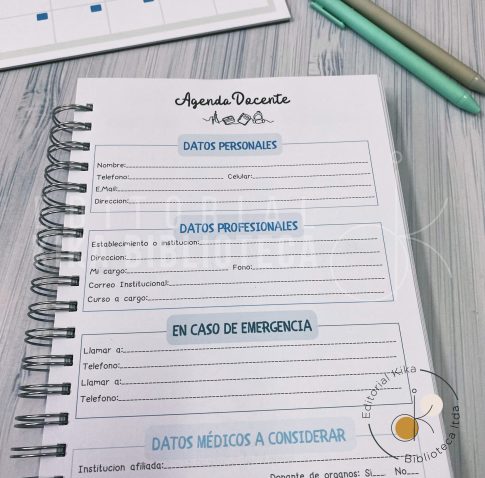 Agenda Docente
DATOS PERSONALES
Nombre:
Telefono: Celular:
E.Mail:
Direccion:
DATOS PROFESIONALES
Establecimiento o institucion:
Direccion:
Mi cargo: Fono:
Correo Institucional:
Curso a cargo:
EN CASO DE EMERGENCIA
Llamar a:
Telefono:
Llamar a:
Telefono:
DATOS MÉDICOS A CONSIDERAR
Institucion afiliada:
Donante de organos: Si No
Editorial Kika
Biblioteca ltda
EDITORIAL
BIBLIOTECA